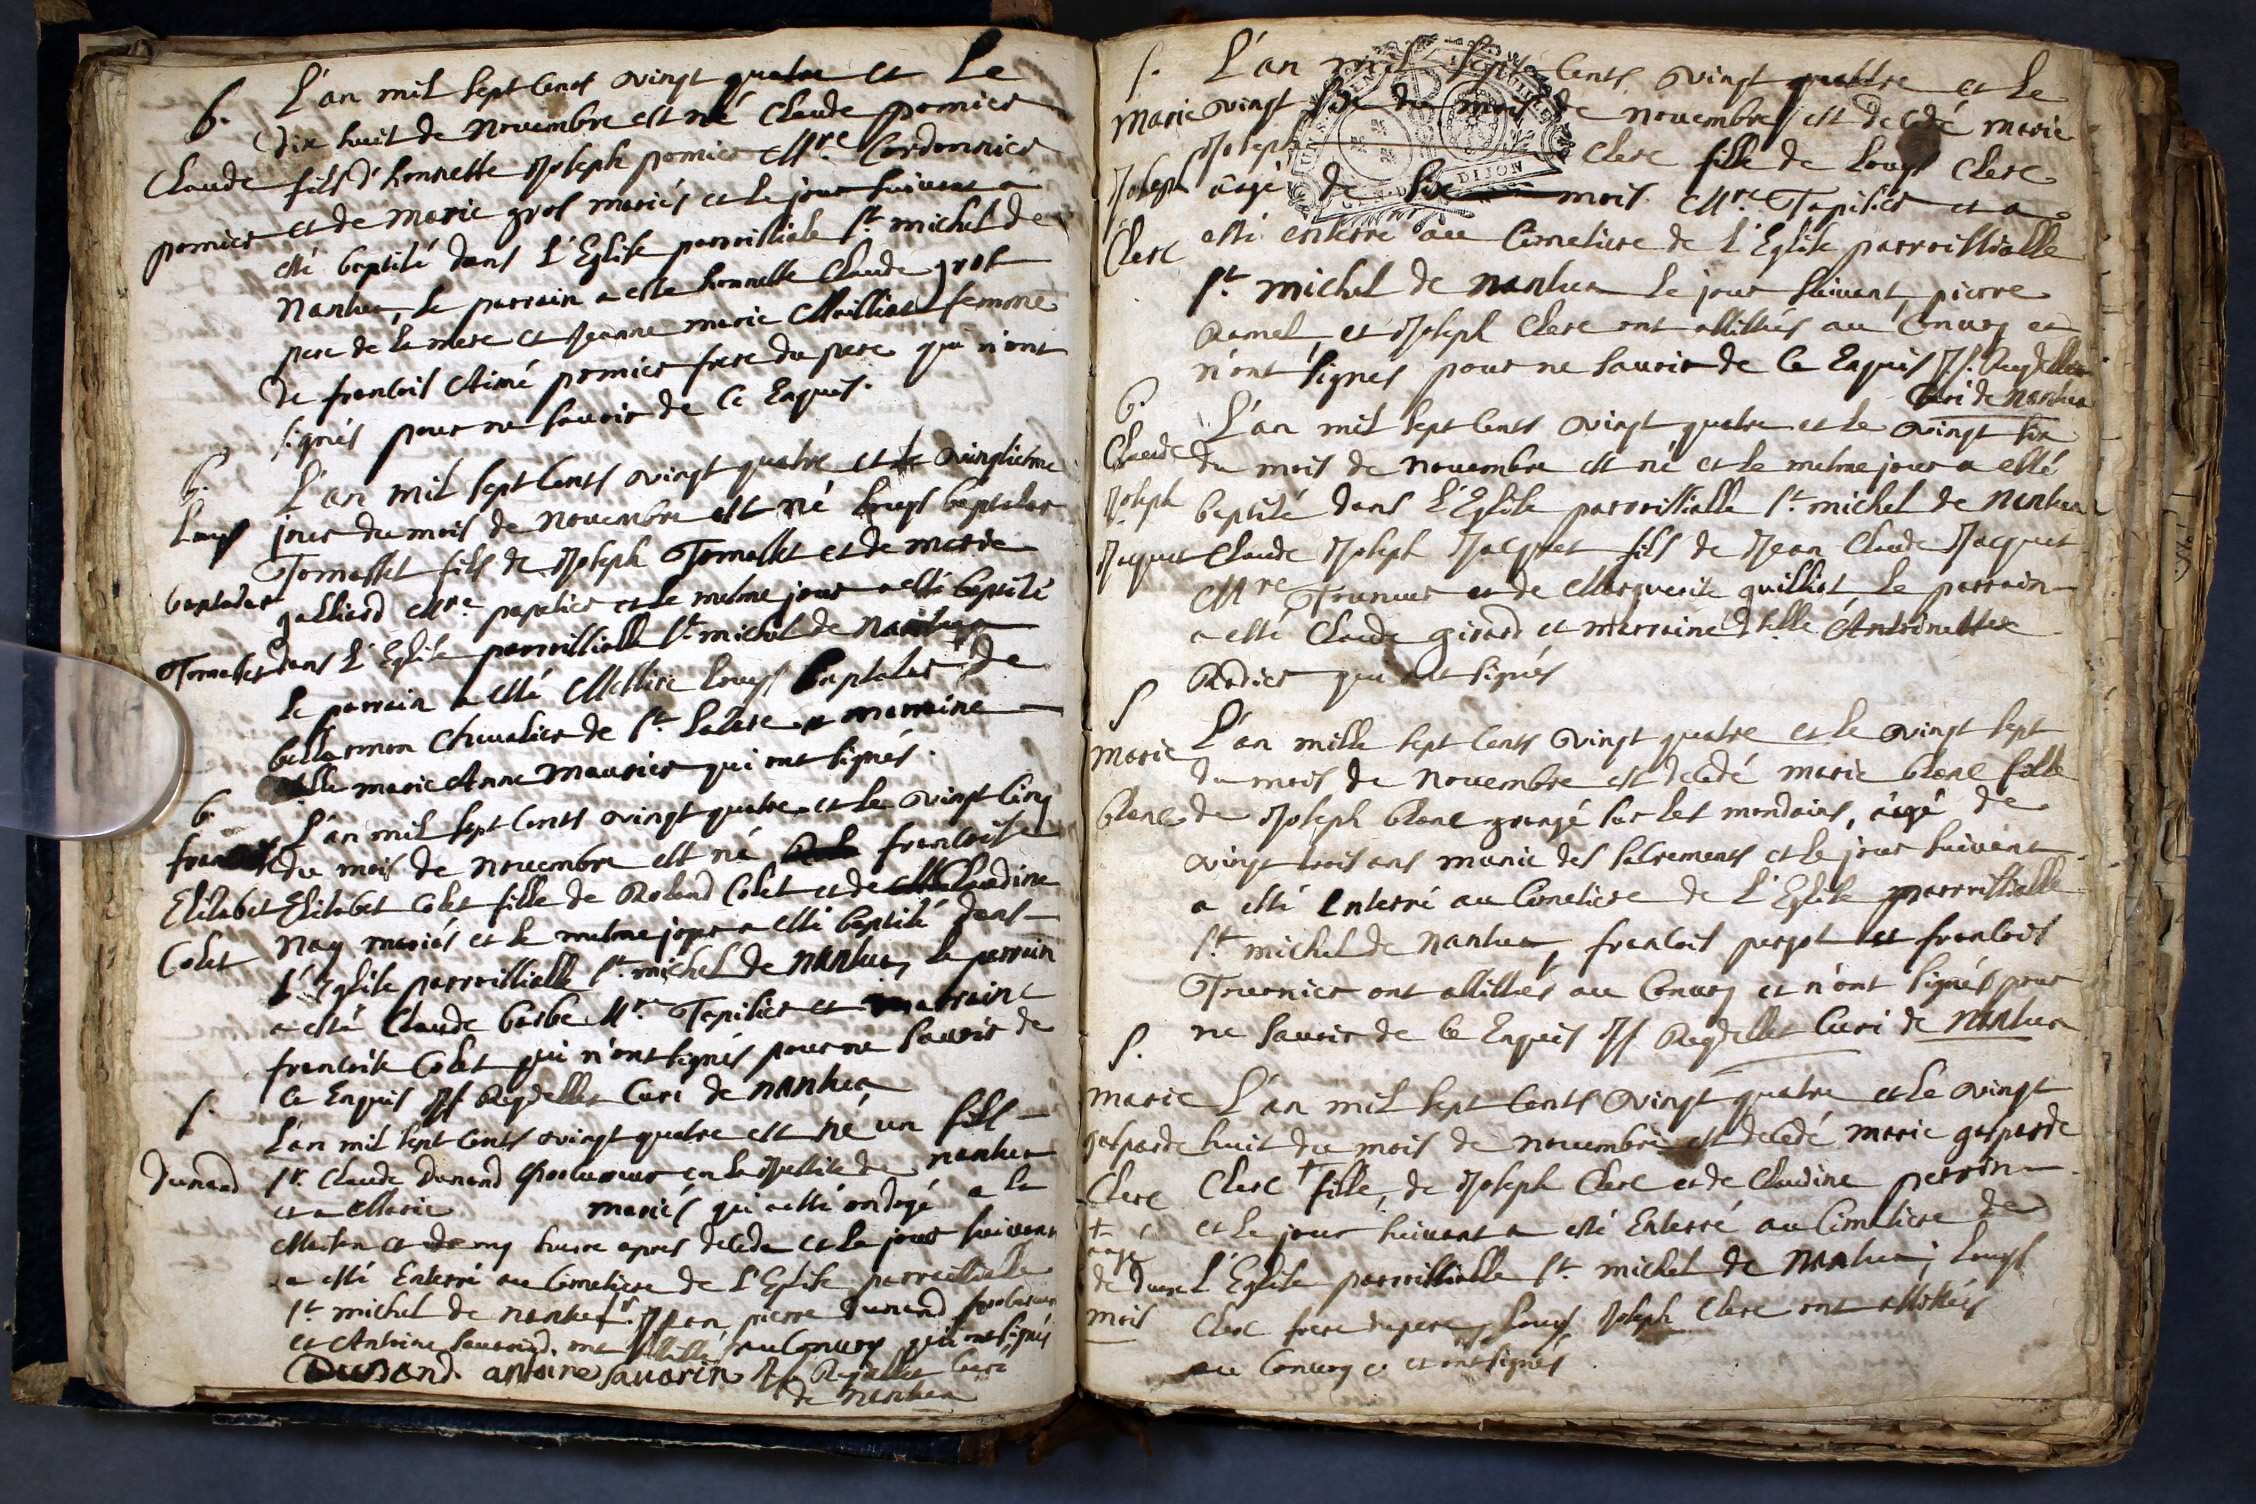 b.
Claude
pomier
L'an mil sept cents vingt quatre et le
dix huit de novembre est né Claude pomier
fils d'honnette Joseph pomier Mre. Cordonnier
et de marie gros mariés et le jour suivant a
esté baptisé dans L'Eglise parroissiale St. michel de
Nantua, le parrain a este honnette Claude gros
pere de la mere et Jeanne marie femme
de francois Aimé pomier frere du pere qui n'ont
signés pour ne sauoir de ce Enquis.
b.
Louys
baptalar
Tomasset
L'an mil sept cents vingt quatre et le vingtieme
jour du mois de novembre est né Louys baptalar
Tomasset fils de Joseph Tomasset et de marie
galliard Mre. papetier et le mesme jour a esté baptisé
dans L'Eglise parroissialle St. michel de Nantua
le parrain a esté Messire Louys baptalar de
bellarmon chevalier de St. Lazare et marraine
marie Anne maurier qui ont signés.
b.
francoise
Elisabet
Colet
L'an mil sept cents vingt quatre et le vingt cinq
du mois de novembre est né francoise
Elisabet Colet fille de Roland Colet et de Claudine
Nay mariés et le mesme jour a esté baptisé dans
L'Eglise parroissialle St. michel de Nantua, le parrain
a esté Claude barbe Mre. Tapisier et marraine
francoise Colet qui n'ont signés pour ne sauoir de
ce Enquis Jf Reydellet Curé de nantua
s.
Dunand
L'an mil sept cents vingt quatre est né un fils
Sr. Claude Dunand procureur en la Justice de nantua
et a Marie mariés qui a esté ondoyé a la
Maison et demy heure apres decede et le jour suivant
a esté Enterré au Cimetiere de L'Eglise parroissialle
St. michel de nantua Sr. Jean pierre Dunand procureur
et Antoine Sauarin. ont assisté au Convoy qui ont signés
Dunand. antoine sauarin Jf Reydellet Curé
de nantua
s.
Marie
Joseph
Clerc
L'an mil sept cents vingt quattre et le
vingt six du mois de novembre est decedé marie
Joseph Clerc fille de Louys Clerc
âagé de six mois. Mre. Tapisier et a
esté enterré au Cimetiere de L'Eglise parroissialle
St. michel de nantua le jour suivant, pierre
Ramel, et Joseph Clerc ont assistés au Convoy et
n'ont signés pour ne sauoir de ce Enquis Jf. Reydellet
Curé de Nantua
b.
Claude
Joseph
Jacquet
L'an mil sept cents vingt quatre et le vingt six
du mois de novembre est né et le mesme jour a esté
baptisé dans L'Eglise parroissialle St. michel de Nantua
Claude Joseph Jacquet fils de Jean Claude Jacquet
Mre Tourneur et de Marguerite guilliot, le parrain
a esté Claude girard et marraine dlle. Antoinette
Rodier qui ont signés
s
marie
blanc
L'an mille sept cents vingt quatre et le vingt sept
du mois de novembre est decedé marie blanc fille
de Joseph blanc grangé sur les mondains, âagé de
vingt trois ans munie des sacrements et le jour suivant
a esté Enterré au Cimetiere de L'Eglise parroissialle
St. michel de nantua, francois pergot et francois
Tournier ont assistés au Convoy et n'ont signés pour
ne sauoir de ce Enquis Jf Reydellet Curé de nantua
s.
marie
gasparde
Clerc
+
aagé
de deux
mois
L'an mil sept cents vingt quatre et le vingt
huit du mois de novembre est decedé marie gasparde
Clerc + fille, de Joseph Clerc et de Claudine perrin
et le jour suivant a esté Enterré au Cimetiere de
L'Eglise parroissialle St. michel de nantua, Louys
Clerc frere du pere, Louys Joseph Clerc ont assistés
au Convoy et ont signés.